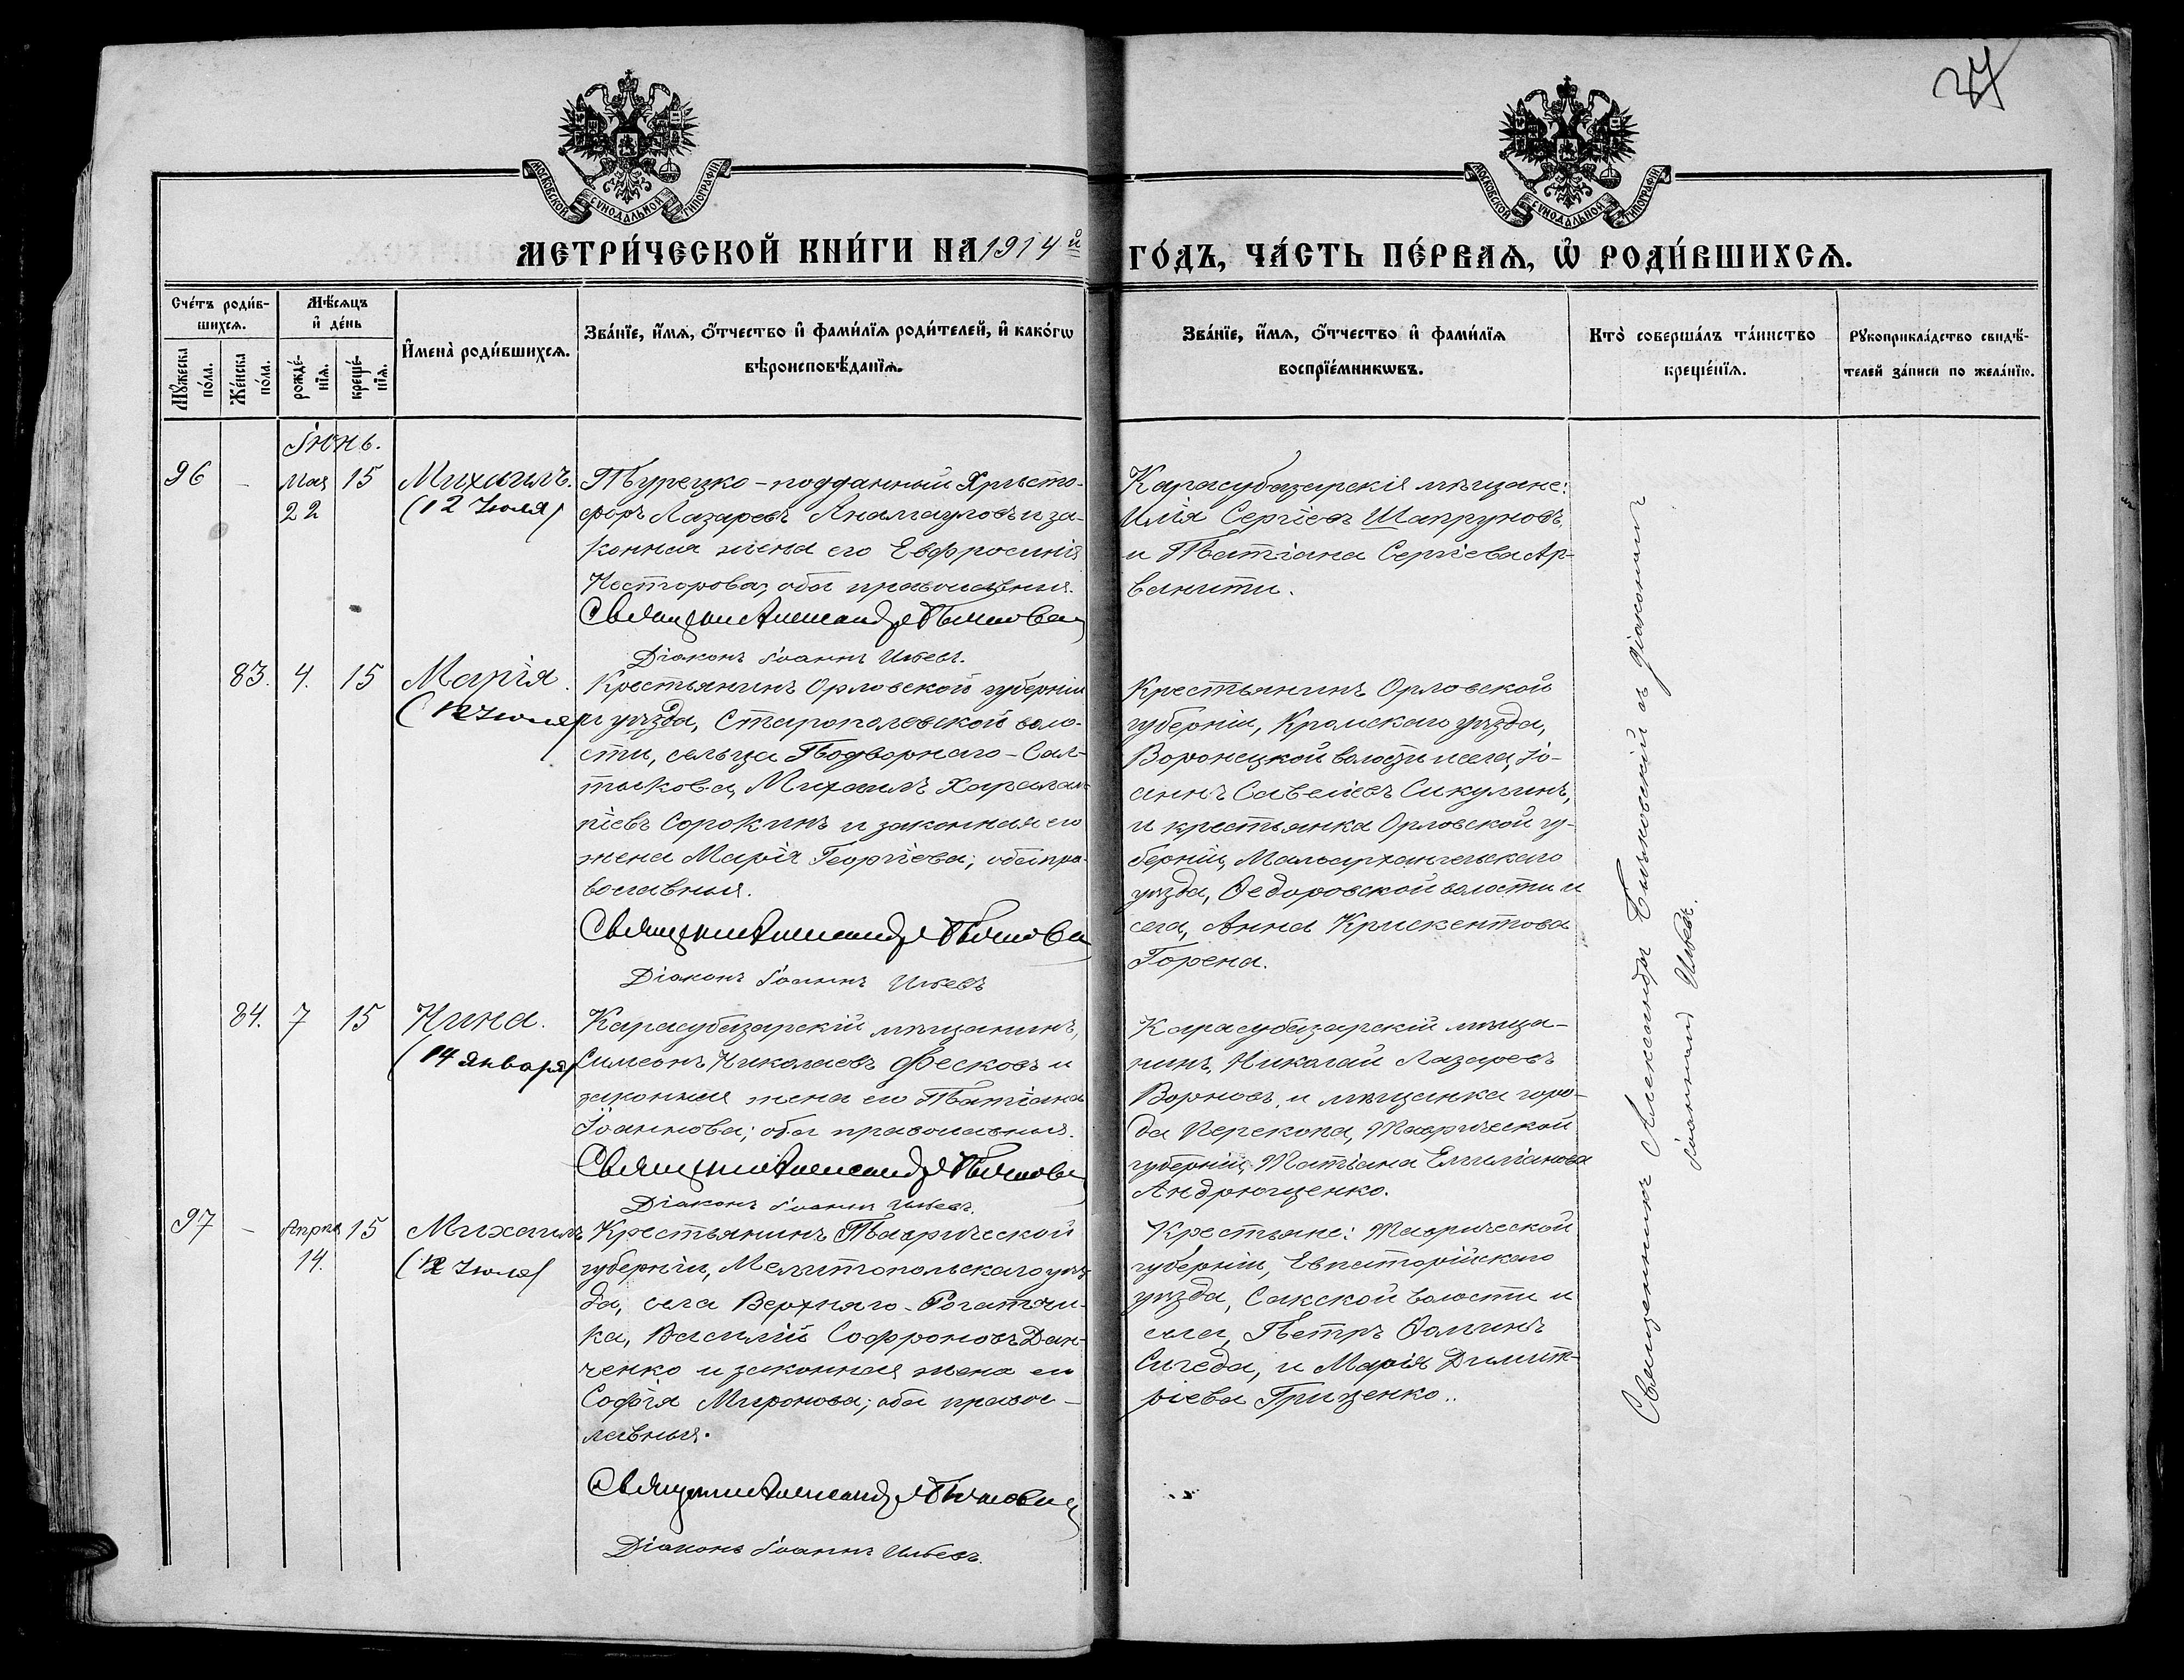 27
МОСКОВСКОЙ СѴНОДАЛЬНОЙ ТИПОГРАФІИ
МОСКОВСКОЙ СѴНОДАЛЬНОЙ ТИПОГРАФІИ
МЕТРИ́ЧЕСКОЙ КНИ́ГИ НА 1914й ГО́ДЪ, ЧА́СТЬ ПЕ́РВАѦ, Ѡ҆ РОДИ́ВШИХСѦ.
Сче́тъ роди́в-
шихсѧ.
Мѣ́сѧцъ
и҆ де́нь
Мꙋ́жеска по́ла.
Же́нска по́ла.
рожде́-
нїѧ.
креще́-
нїѧ.
И҆мена̀ роди́вшихсѧ.
Зва́нїе, и҆́мѧ, ѻ҆́тчество и҆ фами́лїѧ роди́телей, и҆ како́гѡ
вѣроисповѣ́данїѧ.
Зва́нїе, и҆́мѧ, ѻ҆́тчество и҆ фами́лїѧ
воспрїе́мникѡвъ.
Кто̀ соверша́лъ та́инство
креще́нїѧ.
Рꙋкоприкла́дство свидѣ́-
телей за́писи по жела́нїю.
Іюнь.
96 - Мая 15 Михаилъ.
22 (12 Іюля)
Турецко-подданный Христо-
форъ Лазаревъ и за-
конная жена его Евфросинія
Несторова; оба православныя.
Священникъ Александръ
Діаконъ Іоаннъ Ильевъ.
Карасубазарскія мѣщане:
Илія Сергіевъ Шапруновъ,
и Татіана Сергіева Ар-
ванити.
83. 4. 15 Марія.
(12 Іюля)
Крестьянинъ Орловской губерніи
и уѣзда, Старопольской воло-
сти, сельца Подворнаго-Сал-
тыкова, Михаилъ Харалам-
піевъ Сорокинъ и законная его
жена Марія Георгіева; оба пра-
вославныя.
Священникъ Александръ
Діаконъ Іоаннъ Ильевъ
Крестьянинъ Орловской
губерніи, Кромскаго уѣзда,
Воронецкой волости и села, Іо-
аннъ Савеліевъ Сикулинъ,
и крестьянка Орловской гу-
берніи, Малоархангельскаго
уѣзда, Ѳедоровской волости и
села, Анна Крискентова
Горена.
84. 7 15 Нина.
(14 января)
Карасубазарскій мѣщанинъ,
Симеонъ Николаевъ Фесковъ и
законная жена его Татіана
Іоаннова; оба православныя.
Священникъ Александръ
Діаконъ Іоаннъ Ильевъ.
Карасубазарскій мѣща-
нинъ, Николай Лазаревъ
Ворновъ, и мѣщанка горо-
да Перекопа, Таврической
губерніи, Татіана Емиліанова
Андрющенко.
97 - Апрѣля 15 Михаилъ
14. (12 Іюля)
Крестьянинъ Таврической
губерніи, Мелитопольскаго уѣз-
да, села Верхняго-Рогачи-
ка, Василій Софроновъ Дан-
ченко и законная жена его
Софія Миронова; оба правос-
лавныя.
Священникъ Александръ
Діаконъ Іоаннъ Ильевъ.
Крестьяне: Таврической
губерніи, Евпаторійскаго
уѣзда, Сакской волости и
села, Петръ Ѳоминъ
Сигеда, и Марія Димит-
ріева Гриценко..
Священникъ Александръ съ діакономъ
Іоанномъ Ильевъ.